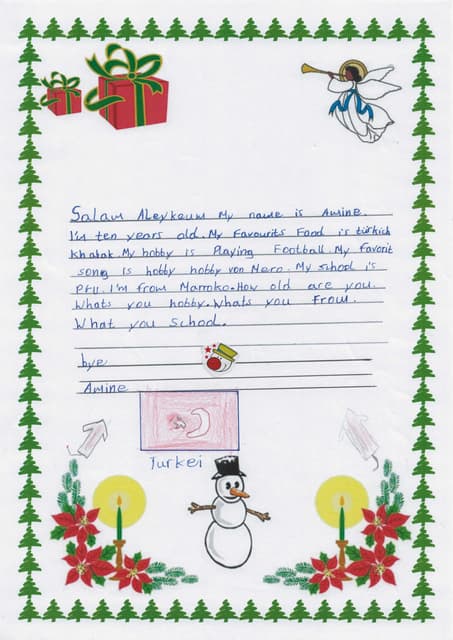 Salam Aleykeum My name is Amine.
I'm ten years old. My Favourits Food is türkich
khabak. My hobby is Playing Football. My favorit
song is hobby hobby von Mero. My school is
PFU. I'm from Marroko. How old are you.
Whats you hobby. Whats you from.
What you School.
bye
Amine
Turkei